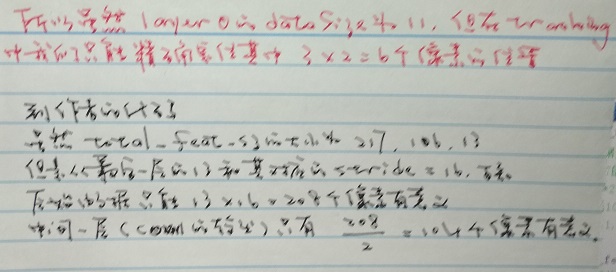 所以虽然 layer 0 的 data size 为 11, 但在 tracking
中我们只能精确定位其中 3 x 2 = 6 个像素的位置
到作者的代码
虽然 total_feat_sz 的大小为 217, 106, 13
但是从最后一层的 13 和其对应的 stride = 16,
原始的数据只能 13 x 16 = 208 个像素有意义
中间一层 (conv1 的输出) 只有 208/2 = 104 个像素有意义.